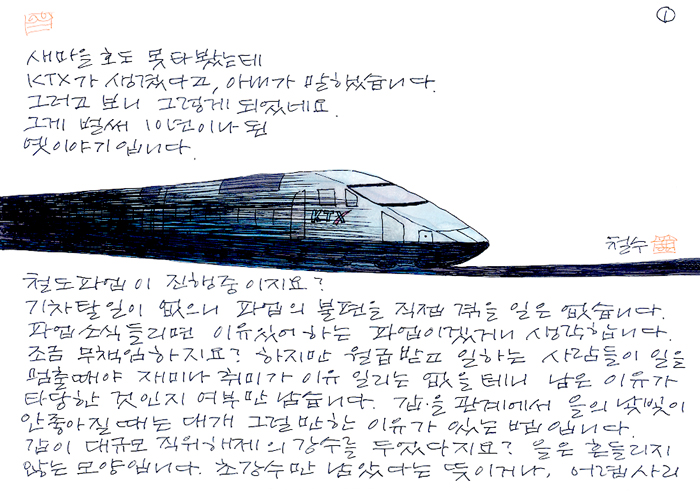 ①
새마을호도 못타봤는데
KTX가 생겼다고, 아내가 말했습니다.
그러고 보니 그렇게 되었네요.
그게 벌써 10년이나 된
옛이야기입니다.
KTX
철수
철도파업이 진행중이지요?
기차탈일이 없으니 파업의 불편을 직접 겪을 일은 없습니다.
파업소식 들리면 이유있어 하는 파업이겠거니 생각합니다.
조금 무책임하지요? 하지만 월급받고 일하는 사람들이 일을
멈출때야 재미나 취미가 이유 일리는 없을테니 남은 이유가
타당한 것인지 여부만 남습니다. 갑·을 관계에서 을의 낯빛이
안좋아질 때는 대개 그럴만한 이유가 있는 법입니다.
갑이 대규모 직위해제의 강수를 두었다지요? 을은 흔들리지
않는 모양입니다. 초강수만 남았다는 뜻이거나, 어렵사리